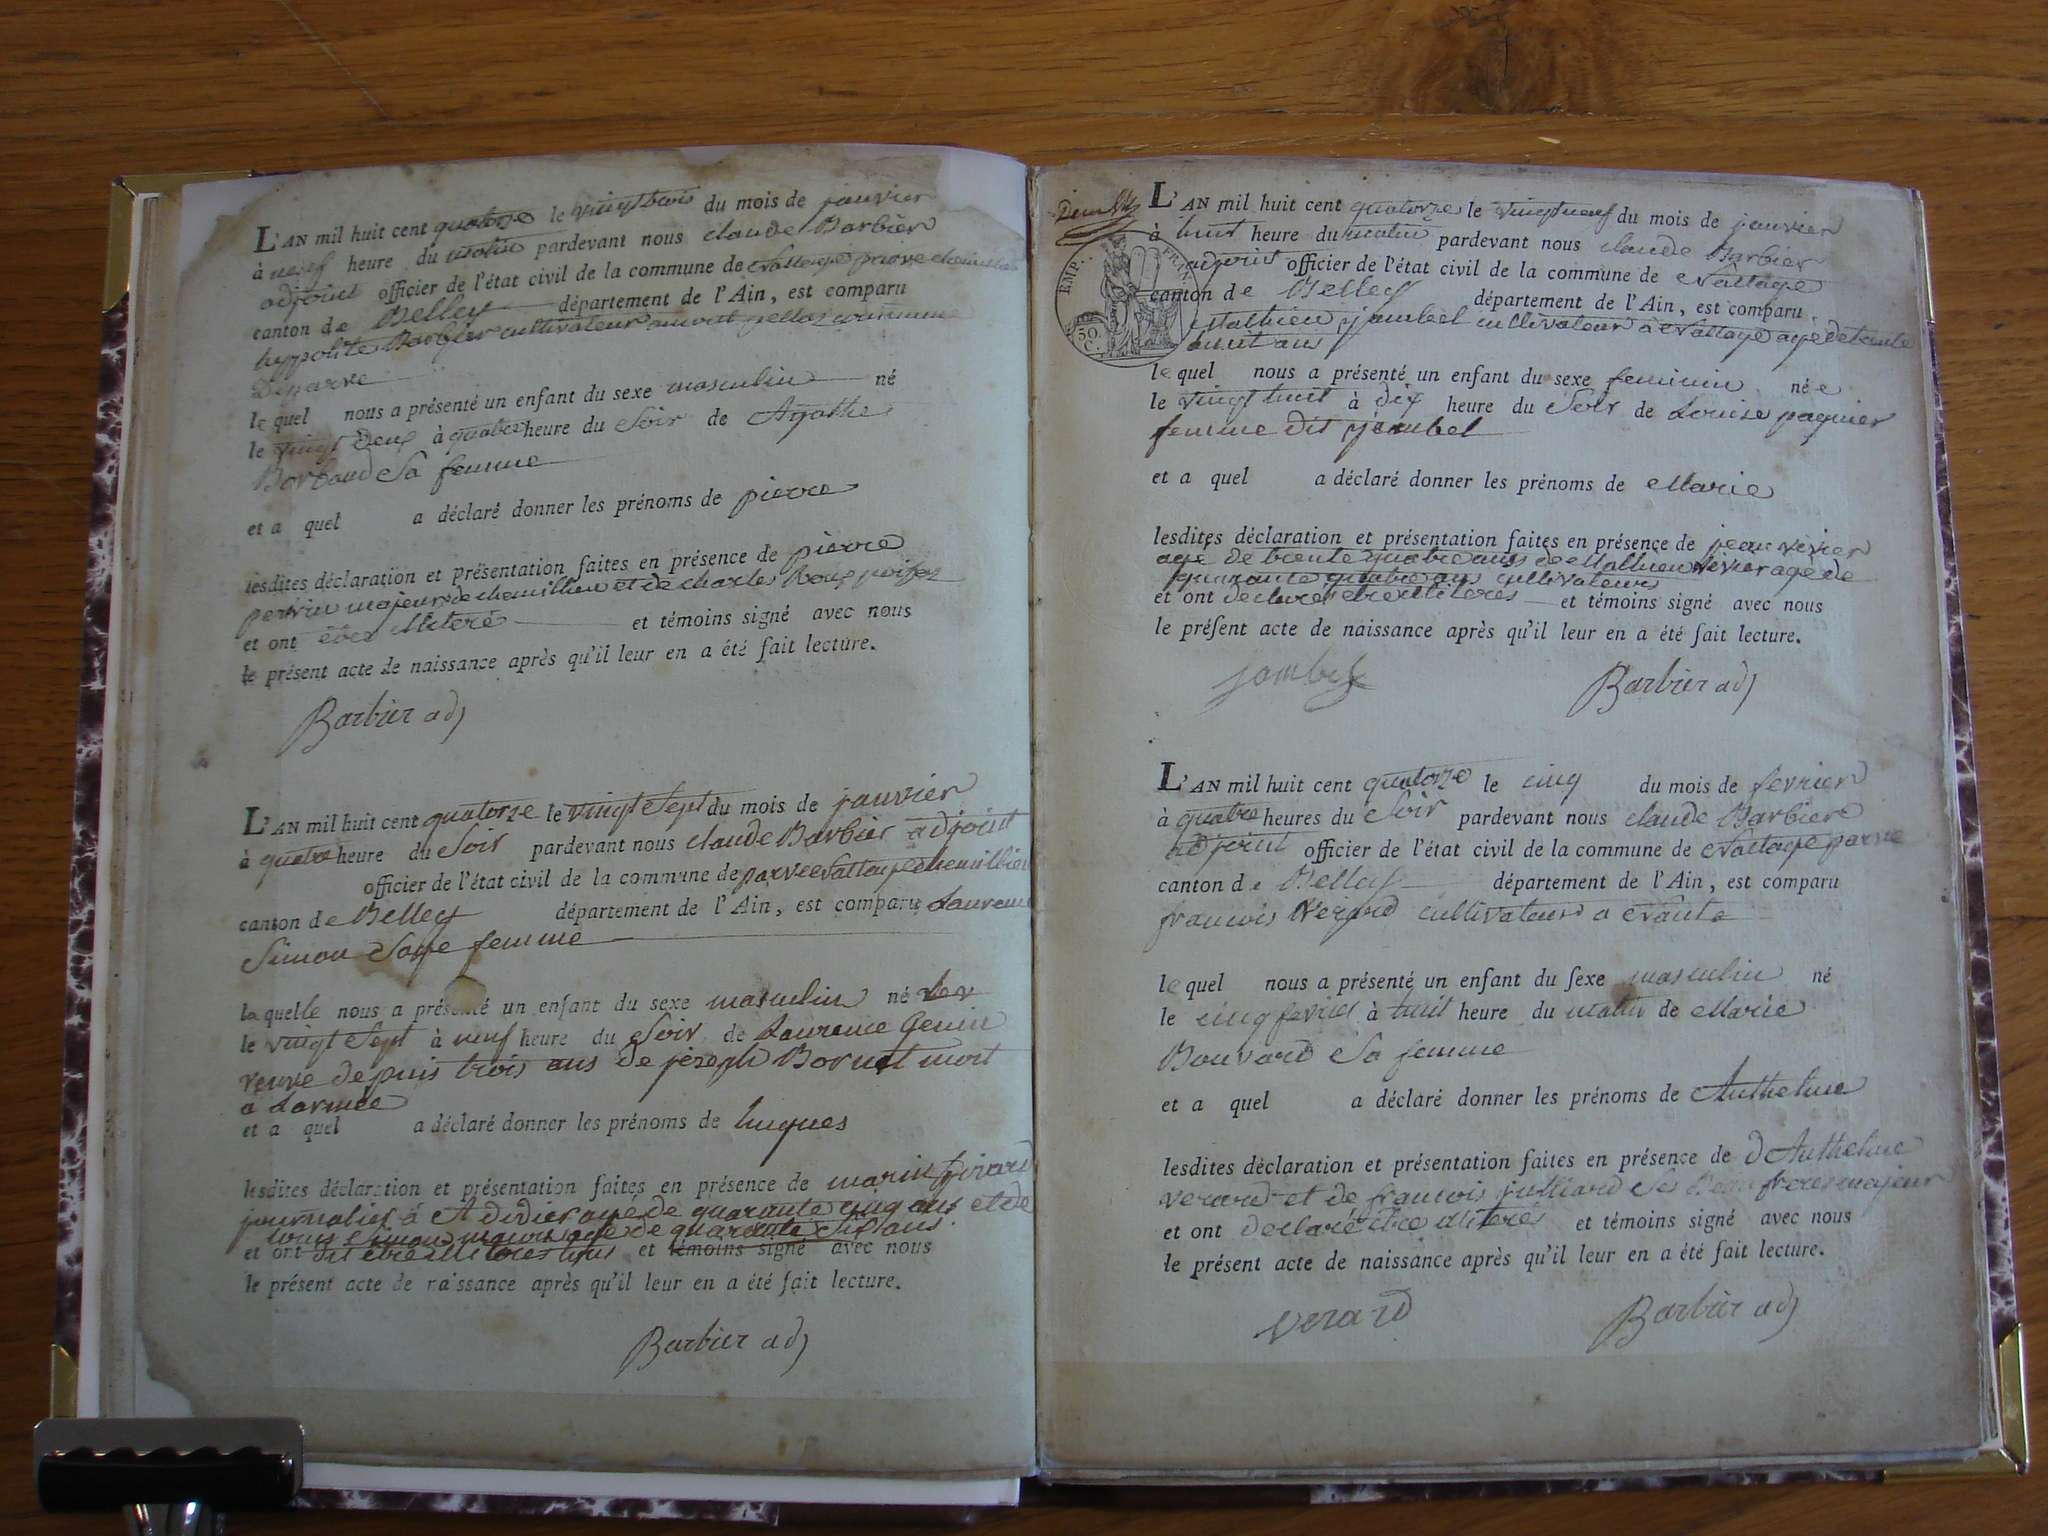 L'AN mil huit cent quatorze le vingt trois du mois de janvier
à neuf heure du matin pardevant nous claude Barbier
adjoint officier de l'état civil de la commune de
canton de Belley département de l'Ain, est comparu
hyppolite Barbier cultivateur commune
De parve
le quel nous a présenté un enfant du sexe masculin né
le vingt Deux à quatre heure du Soir de Agathe
Sa femme
et a quel a déclaré donner les prénoms de pierre
lesdites déclaration et présentation faites en présence de pierre
perrin majeur de et de charles
et ont et témoins signé avec nous
le présent acte de naissance après qu'il leur en a été fait lecture.
Barbier adj
L'AN mil huit cent quatorze le vingt Sept du mois de janvier
à quatre heure du Soir pardevant nous claude Barbier adjoint
officier de l'état civil de la commune de
canton de Belley département de l'Ain, est comparu Laurence
Simon Sage femme
la quelle nous a présenté un enfant du sexe masculin né
le vingt Sept à neuf heure du Soir de Laurence Genin
veuve depuis trois ans de joseph mort
a Larmée
et a quel a déclaré donner les prénoms de hugues
lesdites déclaration et présentation faites en présence de marin
journalier à St didier agé de quarante cinq ans et de
louis Simon agé de quarante Six ans
et ont dit être et témoins signé avec nous
le présent acte de naissance après qu'il leur en a été fait lecture.
Barbier adj
EMP.. FRAN..
50
C.
L'AN mil huit cent quatorze le vingt neuf du mois de janvier
à huit heure du matin pardevant nous claude Barbier
adjoint officier de l'état civil de la commune de
canton de Belley département de l'Ain, est comparu
Mathieu jambel cultivateur à agé de trente
ans
le quel nous a présenté un enfant du sexe feminin née
le vingt huit à dix heure du Soir de Louise paquier
femme dit jambel
et a quel a déclaré donner les prénoms de Marie
lesdites déclaration et présentation faites en présence de jean
agé de trente quatre ans de Mathieu agé de
quarante quatre ans cultivateurs
et ont declaré et témoins signé avec nous
le présent acte de naissance après qu'il leur en a été fait lecture.
jambel Barbier adj
L'AN mil huit cent quatorze le cinq du mois de fevrier
à quatre heures du Soir pardevant nous claude Barbier
adjoint officier de l'état civil de la commune de parve
canton de Belley département de l'Ain, est comparu
francois Verard cultivateur a
le quel nous a présenté un enfant du sexe masculin né
le cinq fevrier à huit heure du matin de Marie
Bouvard Sa femme
et a quel a déclaré donner les prénoms de Anthelme
lesdites déclaration et présentation faites en présence de dAnthelme
verard et de francois julliard Ses Beau freres majeur
et ont declaré être et témoins signé avec nous
le présent acte de naissance après qu'il leur en a été fait lecture.
verard Barbier adj